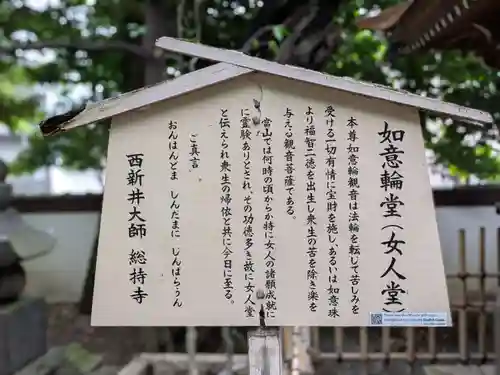 如意輪堂(女人堂)
本尊如意輪観音は法輪を転して苦しみを
受ける一切有情に宝財を施し、あるいは如意珠
より福智二徳を出生し衆生の苦を除き楽を
与える観音菩薩である。
当山では何時の頃か特に女人の諸願成就に
霊験ありとされ、その功徳多き故に女人堂
と伝えられ衆生の帰依と共に今日に至る。
ご真言
おんはんどま しんだまに じんばらうん
西新井大師 総持寺